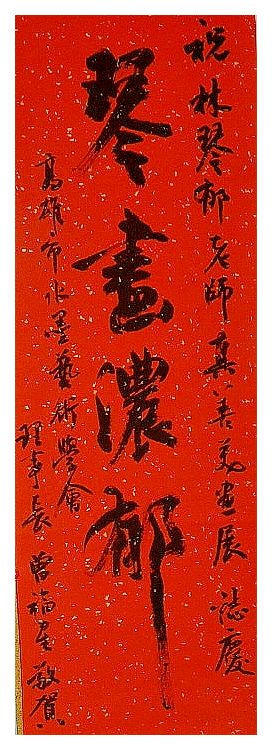 祝林琴郁老師真善美畫展誌慶
琴畫濃郁
高雄市水墨藝術學會
理事長 曾福星 敬賀